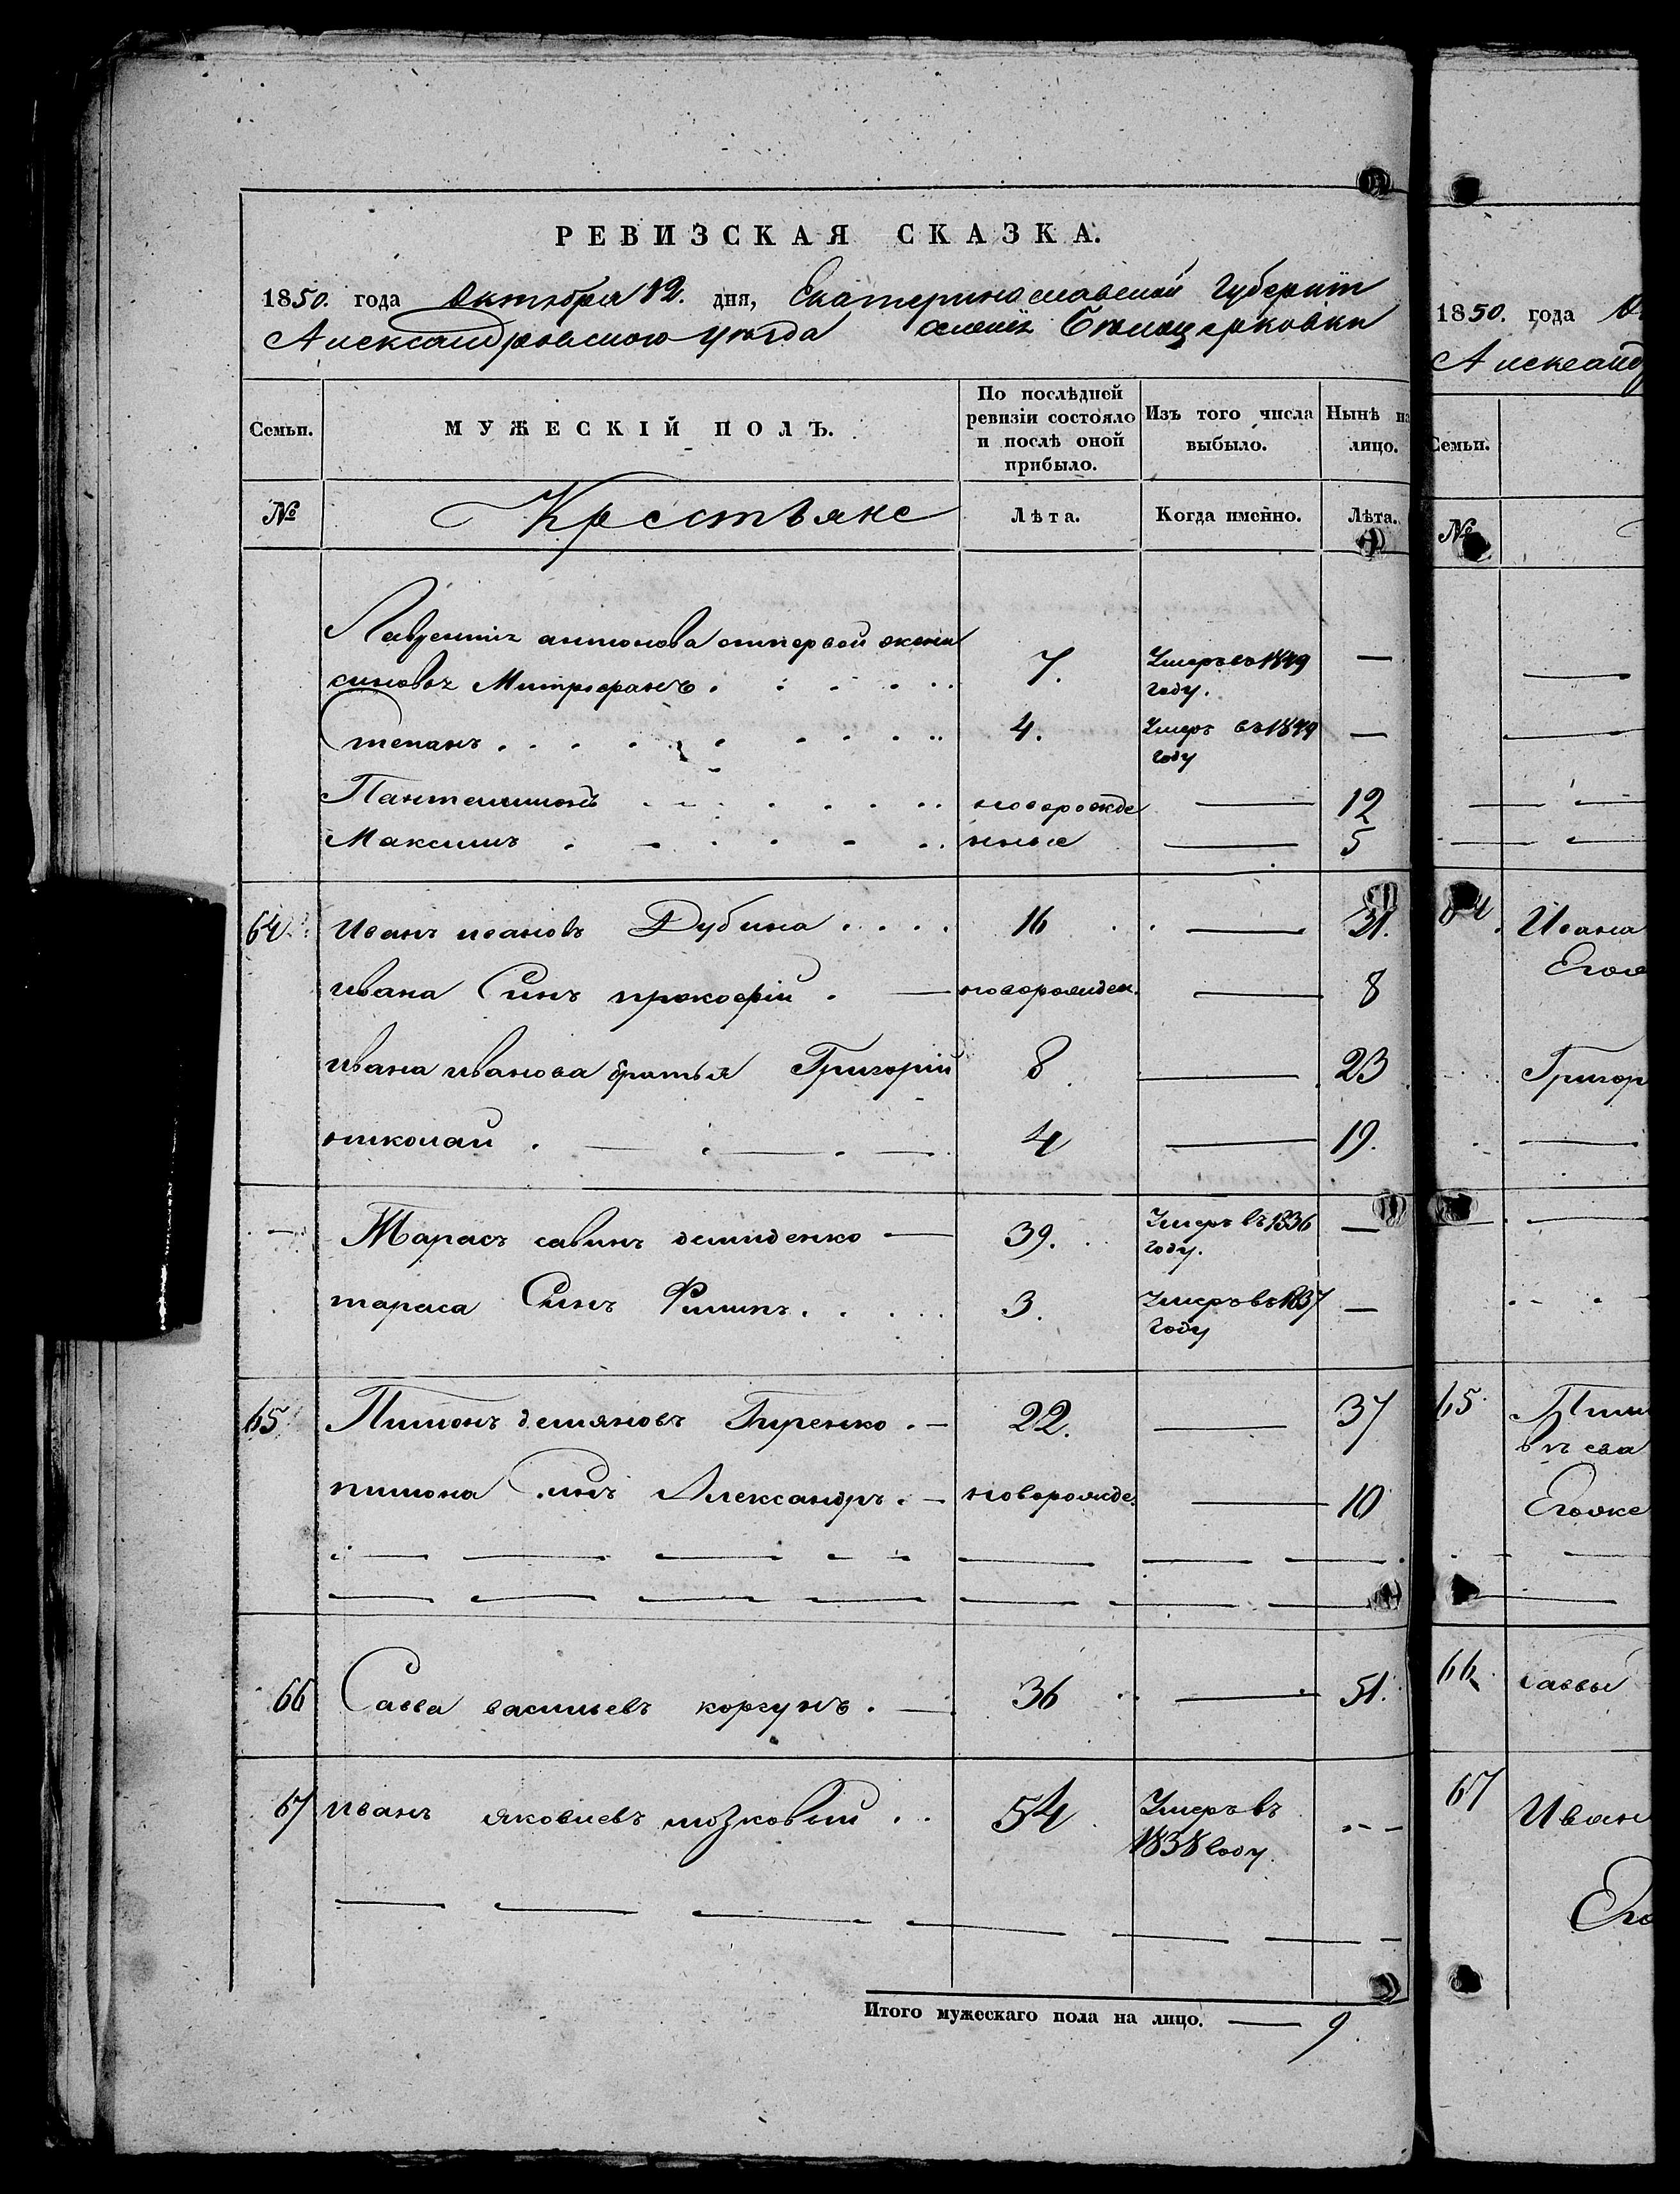 РЕВИЗСКАЯ СКАЗКА.
1850. года Октября 12. дня, Екатеринославской Губернии
Александровского уѣзда имѣнія Бѣлоцерковки
Семьи. МУЖЕСКІЙ ПОЛЪ. По послѣдней ревизіи состояло и послѣ оной прибыло. Изъ того числа выбыло. Нынѣ на лицо.
№ Крестьяне Лѣта. Когда именно. Лѣта.
Лаврентія антонова отпервой жены
синовья Митрофанъ 7. Умеръ въ 1849 году. —
Степанъ 4. Умеръ въ 1849 году —
Пантелимонъ новорожде — 12
Максимъ нные — 5
64 Иванъ ивановъ Дубина 16 — 31.
ивана Синъ прокофій новорожден. — 8
ивана иванова братья Григорій 8 — 23
николай 4 — 19.
— Тарасъ савинъ демиденко 39. Умеръ въ 1836 году. —
тараса Синъ Филипъ 3. Умеръ въ 1837 году —
65 Пимонъ демяновъ Гиренко 22. — 37
пимона Синъ Александръ новорожде. — 10
66 Савва васильевъ корсунъ 36 — 51.
67 иванъ яковлевъ мозковый 54 Умеръ въ 1838 году. --
Итого мужескаго пола на лицо. — 9.
1850. года
Александ
Семьи.
№
64 Ивана
Его
Григор
65 Пим
Егоже
66 саввы
67 Иван
Его